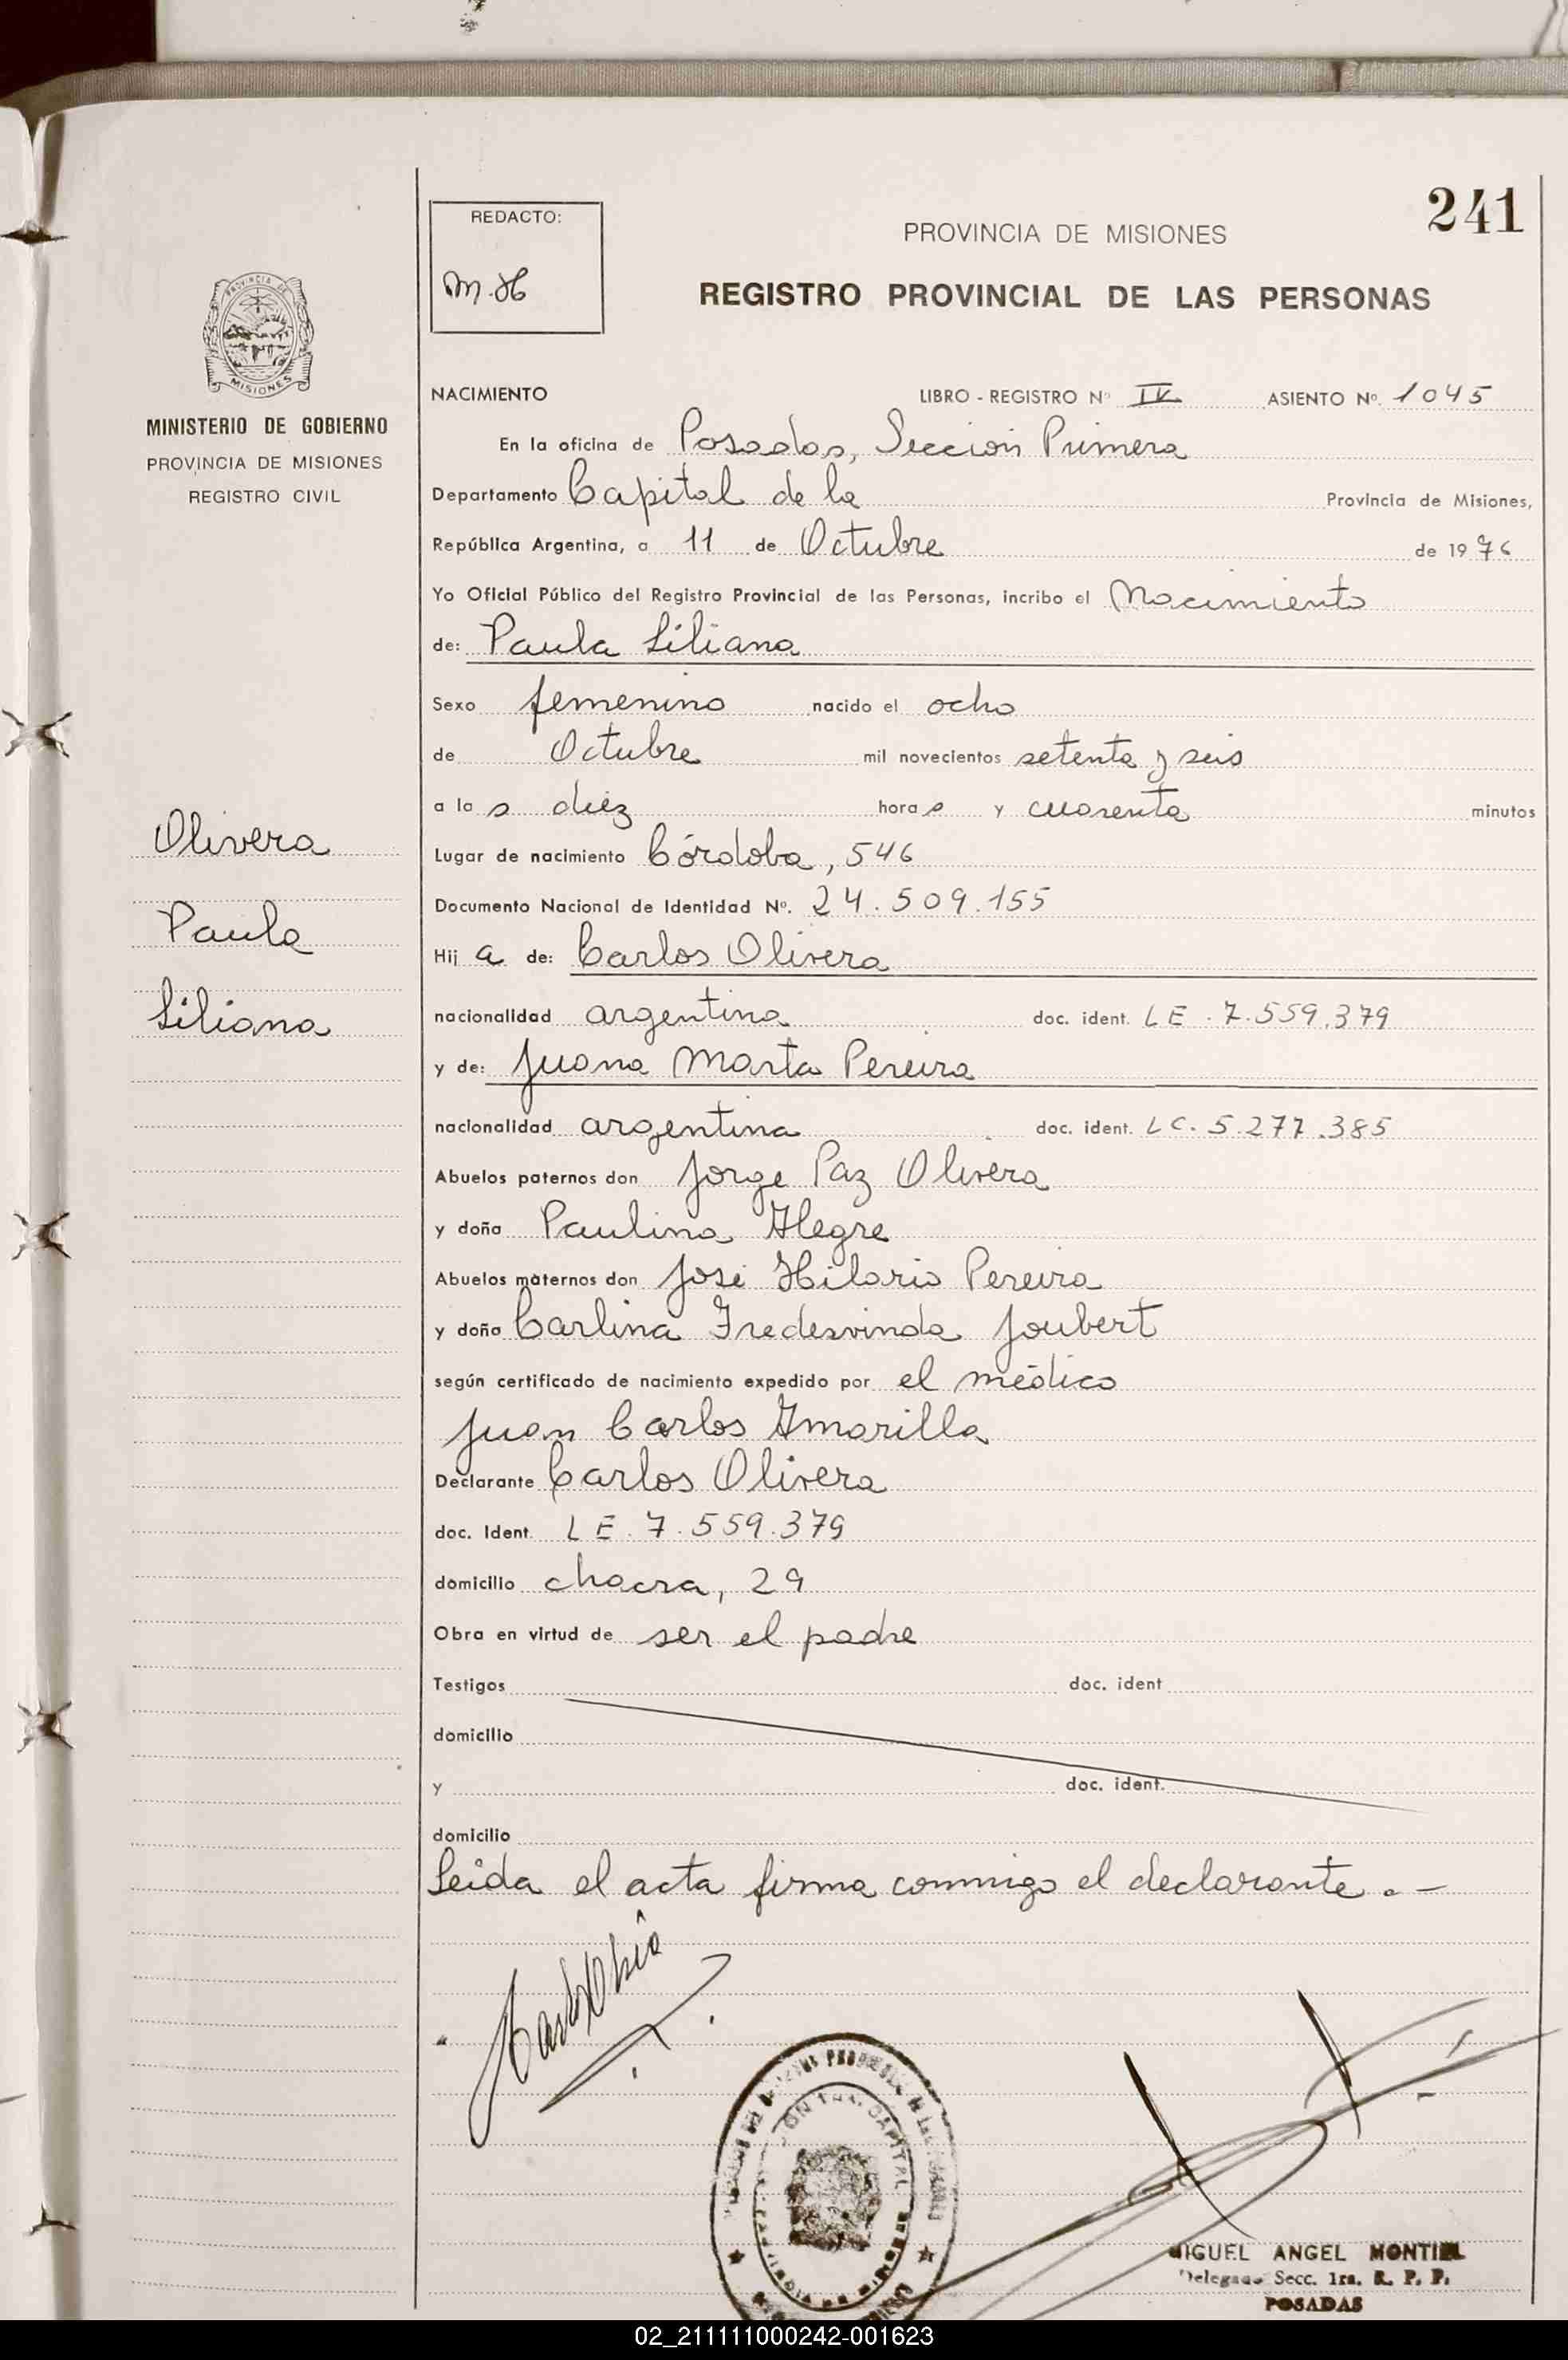 241
REDACTO:
M.H
PROVINCIA DE MISIONES
REGISTRO PROVINCIAL DE LAS PERSONAS
PROVINCIA DE
MISIONES
MINISTERIO DE GOBIERNO
PROVINCIA DE MISIONES
REGISTRO CIVIL
Olivera
Paula
Liliana
NACIMIENTO LIBRO - REGISTRO Nº IV ASIENTO Nº. 1045
En la oficina de Posadas, Sección Primera
Departamento Capital de la Provincia de Misiones,
República Argentina, a 11 de Octubre de 1976
Yo Oficial Público del Registro Provincial de las Personas, incribo el Nacimiento
de: Paula Liliana
Sexo femenino nacido el ocho
de Octubre mil novecientos setenta y seis
a las diez horas y cuarenta minutos
Lugar de nacimiento Córdoba, 546
Documento Nacional de Identidad Nº. 24.509.155
Hija de: Carlos Olivera
nacionalidad argentina doc. ident. LE. 7.559.379
y de: Juana Marta Pereira
nacionalidad argentina doc. ident. LC. 5.277.385
Abuelos paternos don Jorge Paz Olivera
y doña Paulina Alegre
Abuelos maternos don José Hilario Pereira
y doña Carlina Fredesvinda Joubert
según certificado de nacimiento expedido por el médico
Juan Carlos Amarilla
Declarante Carlos Olivera
doc. Ident. LE. 7.559.379
domicilio chacra, 29
Obra en virtud de ser el padre
Testigos doc. ident
domicilio
y doc. ident.
domicilio
Leida el acta firma conmigo el declarante.-
MIGUEL ANGEL MONTIEL
Delegado Secc. 1ra. R. P. P.
POSADAS
02_211111000242-001623